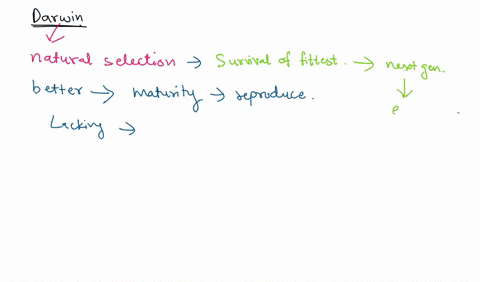 Darwin
natural selection → Survival of fittest. → next gen.
better → maturity → reproduce. e
Lacking →